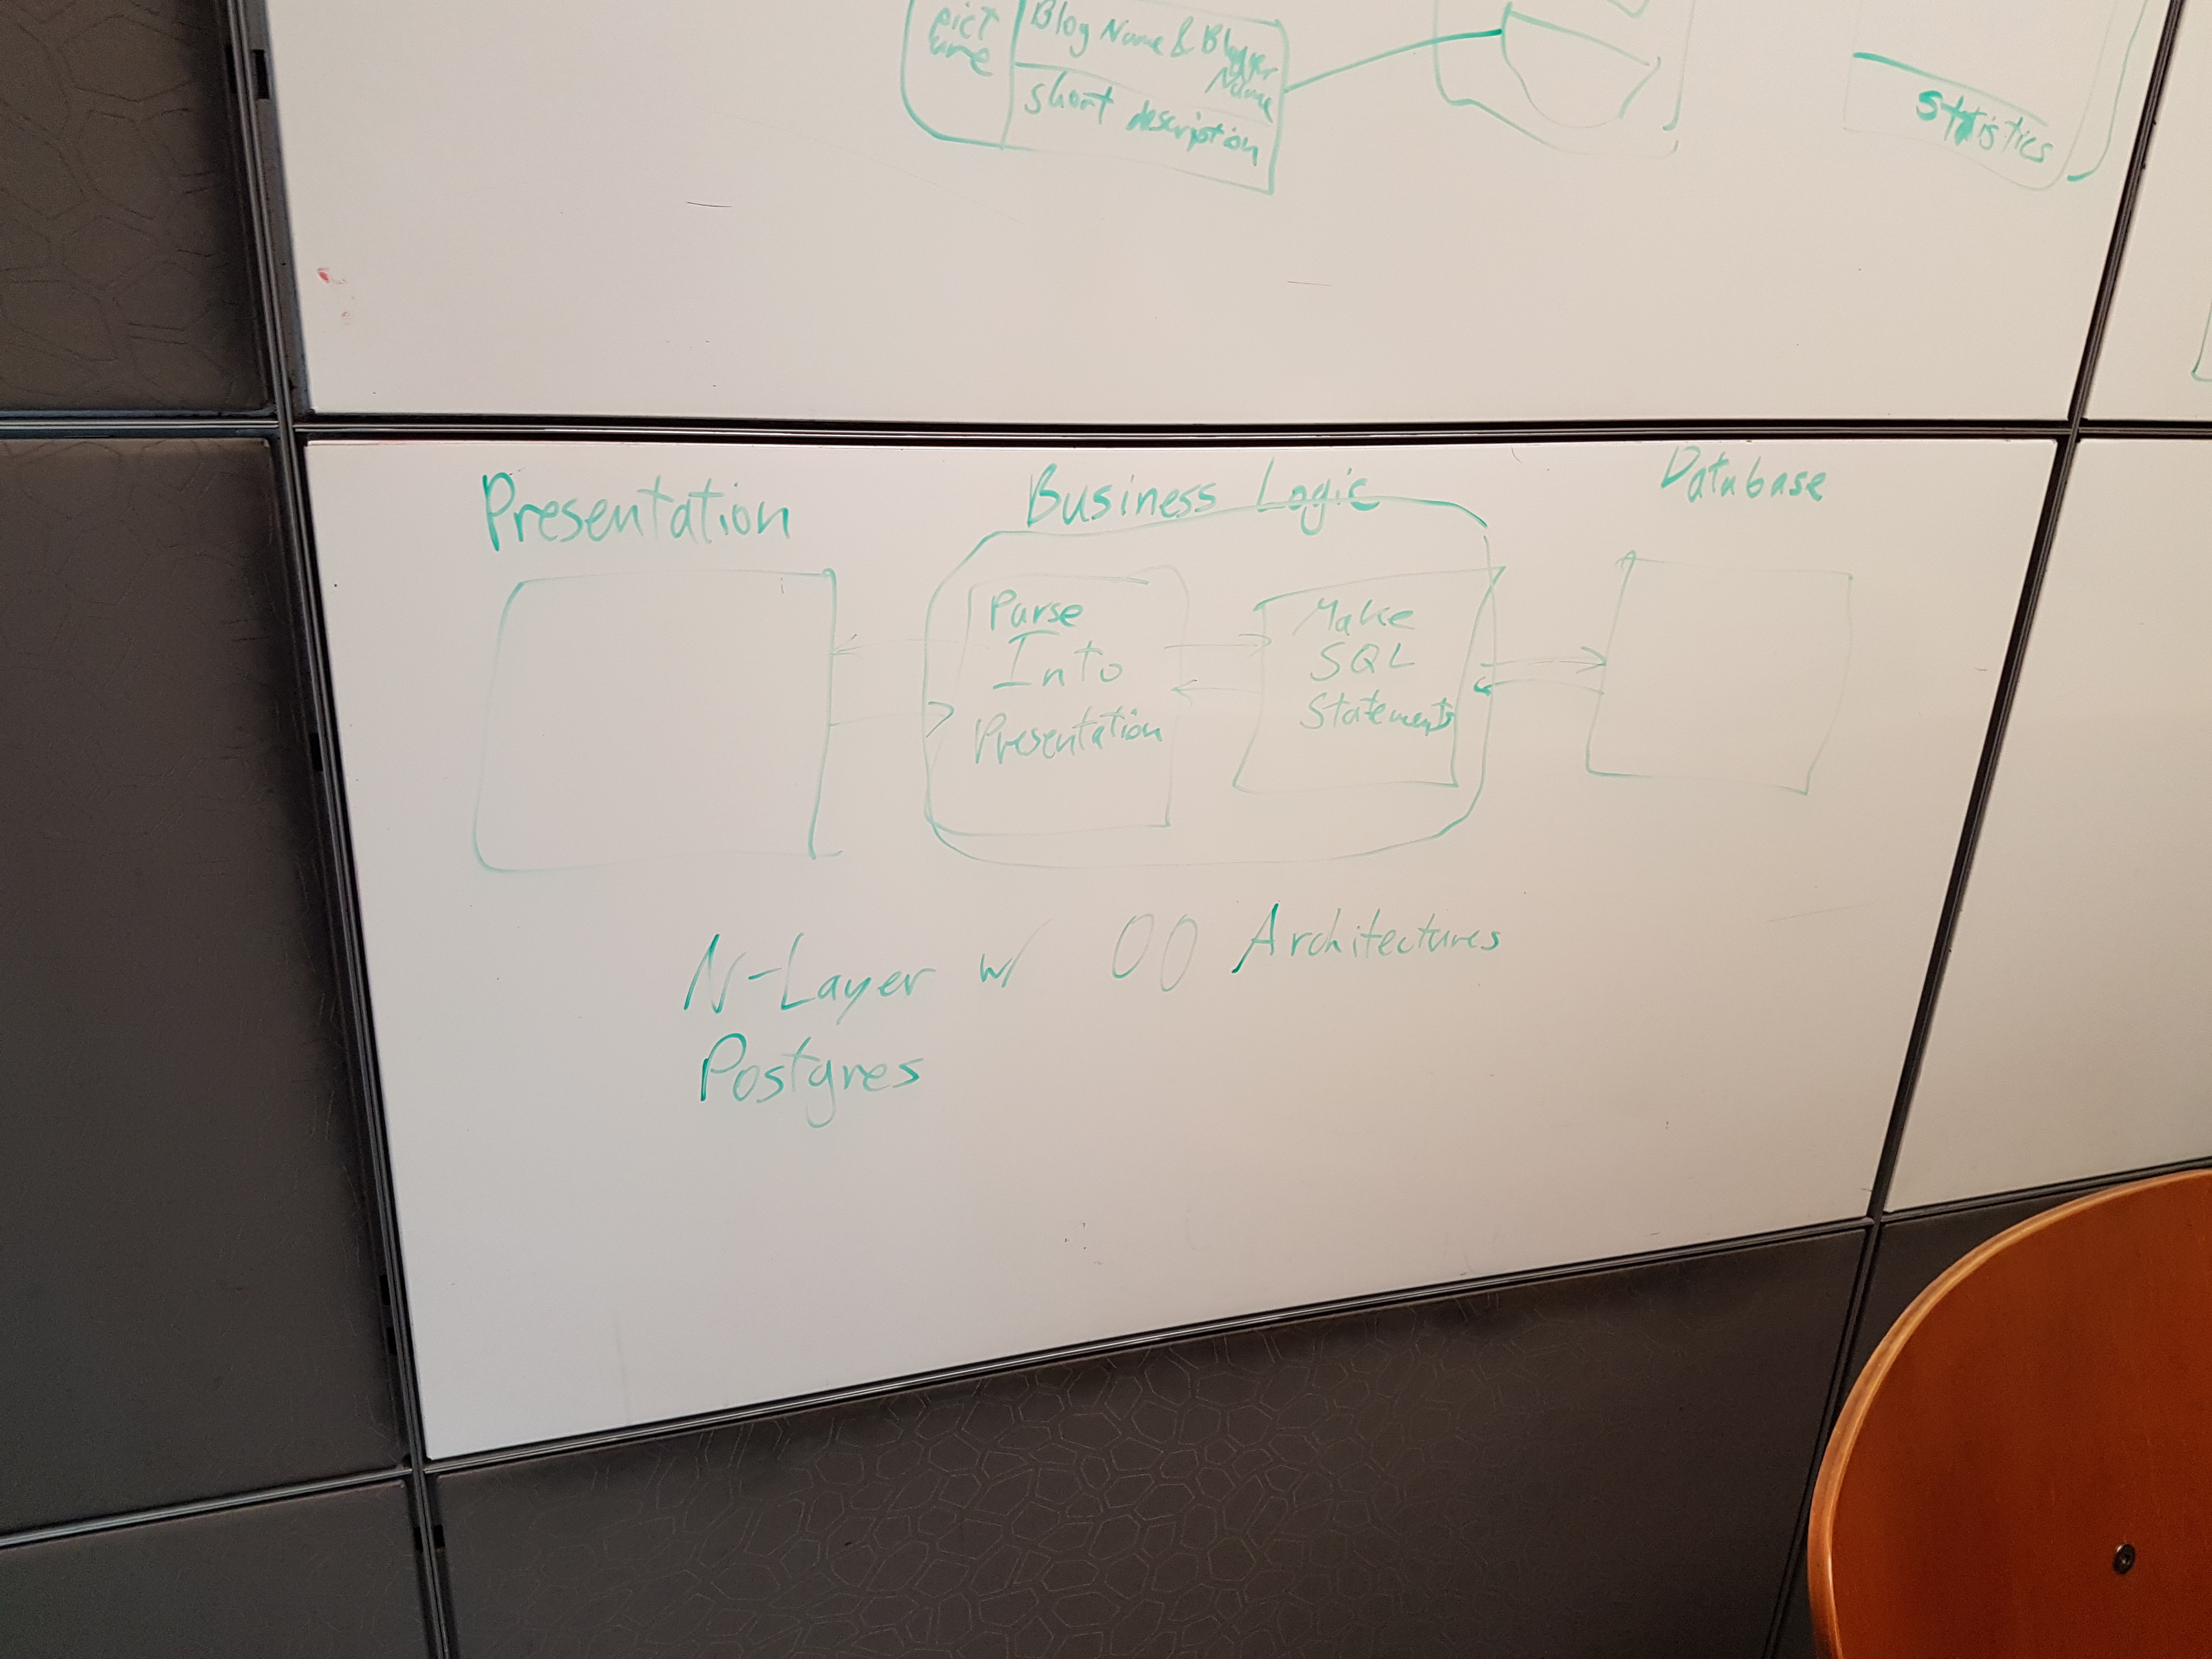 pict
ure
Blog Name & Blogger
Name
short description
Statistics
Presentation
Business Logic
Database
Parse
Into
Presentation
Make
SQL
Statements
N-Layer w/ OO Architectures
Postgres